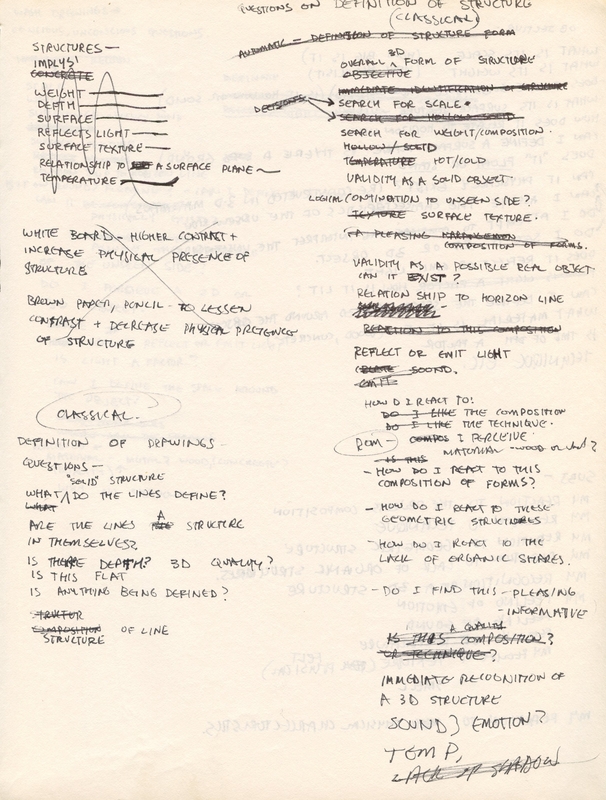 QUESTIONS ON DEFINITION OF STRUCTURE
(CLASSICAL)
STRUCTURES —
IMPLYS!
CONCRETE
WEIGHT
DEPTH
SURFACE
REFLECTS LIGHT
SURFACE TEXTURE
RELATIONSHIP TO A SURFACE PLANE
TEMPERATURE
WHITE BOARD - HIGHER CONTRAST +
INCREASE PHYSICAL PRESENCE OF
STRUCTURE
BROWN PAPER, PENCIL - TO LESSEN
CONTRAST + DECREASE PHYSICAL PRETENCE
OF STRUCTURE
CLASSICAL.
DEFINITION OF DRAWINGS -
QUESTIONS —
"SOLID" STRUCTURE
WHAT / DO THE LINES DEFINE?
WHAT
ARE THE LINES A THE STRUCTURE
IN THEMSELVES?
IS THERE DEPTH? 3D QUALITY?
IS THIS FLAT
IS ANYTHING BEING DEFINED?
STRUCTOR
COMPOSITION OF LINE
STRUCTURE
AUTOMATIC - DEFINITION OF STRUCTURE FORM
3D
OVERALL ^ FORM OF STRUCTURE
OBJECTIVE
IMMEDIATE IDENTIFICATION OF STRUCTURE
DECISIONS
SEARCH FOR SCALE
SEARCH FOR HOLLOW SOLID
SEARCH FOR WEIGHT/COMPOSITION
HOLLOW / SOLID
TEMPERATURE HOT/COLD
VALIDITY AS A SOLID OBJECT
LOGICAL CONTINUATION TO UNSEEN SIDE?
TEXTURE SURFACE TEXTURE.
A PLEASING ARRANGEMEN
COMPOSITION OF FORMS.
VALIDITY AS A POSSIBLE REAL OBJECT
CAN IT EXIST?
RELATION SHIP TO HORIZON LINE
REACTION TO THIS COMPOSITION
REFLECT OR EMIT LIGHT
SOUND.
EMIT
HOW D I REACT TO:
DO I LIKE THE COMPOSITION
DO I LIKE THE TECHNIQUE.
COMPOS I PERCEIVE
MATERIAL - WOOD OR WHAT?
IS THIS
- HOW DO I REACT TO THIS
COMPOSITION OF FORMS?
- HOW DO I REACT TO THESE
GEOMETRIC STRUCTURES
- HOW DO I REACT TO THE
LACK OF ORGANIC SHAPES.
- DO I FIND THIS - PLEASING
- INFORMATIVE
A QUALITY
IS THIS COMPOSITION?
OR TECHNIQUE?
IMMEDIATE RECOGNITION OF
A 3D STRUCTURE
SOUND } EMOTION?
TEMP,
LACK OF SHADOW